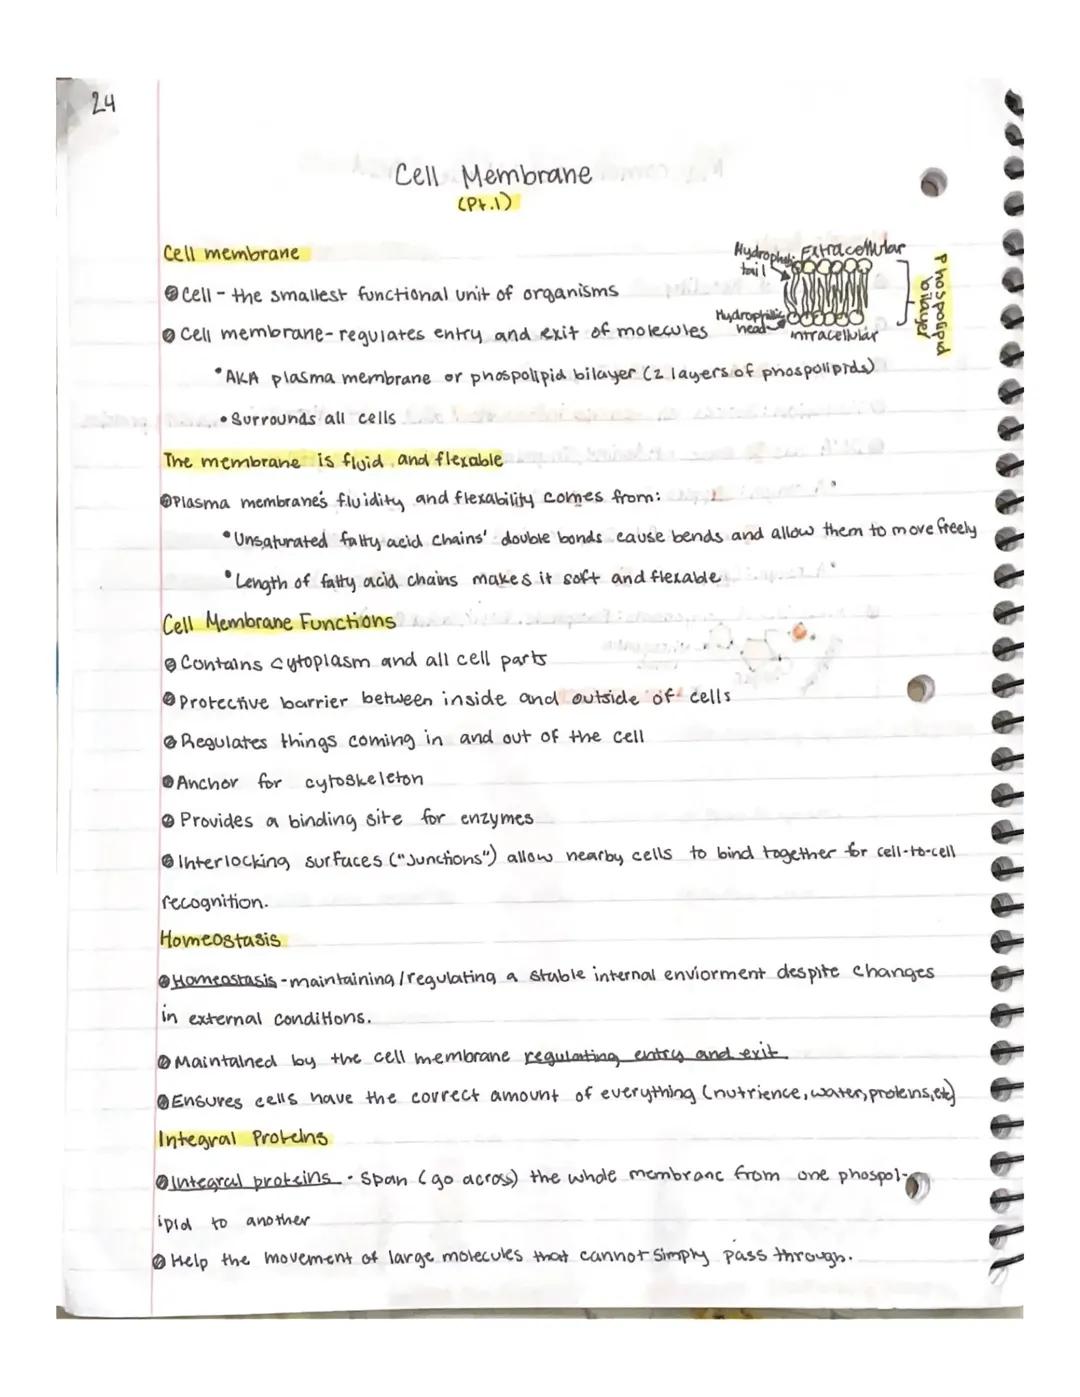 24
Cell Membrane
(Pt.1)
Cell membrane
Hydrophobic tail
Extracellular
Hydrophilic head
intracellular
Phospolipid bilayer
Cell - the smallest functional unit of organisms
Cell membrane- regulates entry and exit of molecules
AKA plasma membrane or phospolipid bilayer (2 layers of phospolipids)
Surrounds all cells
The membrane is fluid and flexable
Plasma membrane's fluidity and flexability comes from:
Unsaturated fatty acid chains' double bonds cause bends and allow them to move freely
Length of fatty acid chains makes it soft and flexable
Cell Membrane Functions
Contains cytoplasm and all cell parts
Protective barrier between inside and outside of cells
Regulates things coming in and out of the cell
Anchor for cytoskeleton
Provides a binding site for enzymes
Interlocking surfaces ("Junctions") allow nearby cells to bind together for cell-to-cell
recognition.
Homeostasis
Homeostasis - maintaining/regulating a stable internal enviorment despite changes
in external conditions.
Maintained by the cell membrane regulating entry and exit
Ensures cells have the correct amount of everything (nutrience, water, proteins, etc)
Integral Proteins
Integral proteins - Span (go across) the whole membrane from one phospol-
ipid to another
Help the movement of large molecules that cannot simply pass through.